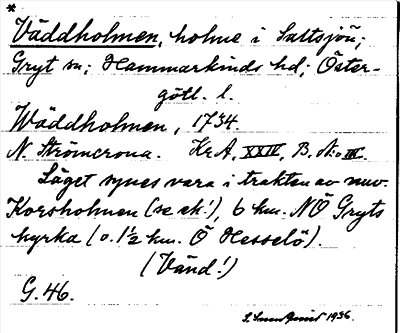 *
Väddholmen, holme i Saltsjön;
Gryt sn; Hammarkinds hd; Öster-
götl. l.
Wäddholmen, 1734.
N. Strömcrona. Kr A, XXIV, B. N:o III.
Läget synes vara i trakten av nuv.
Korsholmen (se ek!), 6 km. NÖ Gryts
kyrka (o. 1½ km. Ö Hesselö).
(Vänd!)
G. 46.
1936.